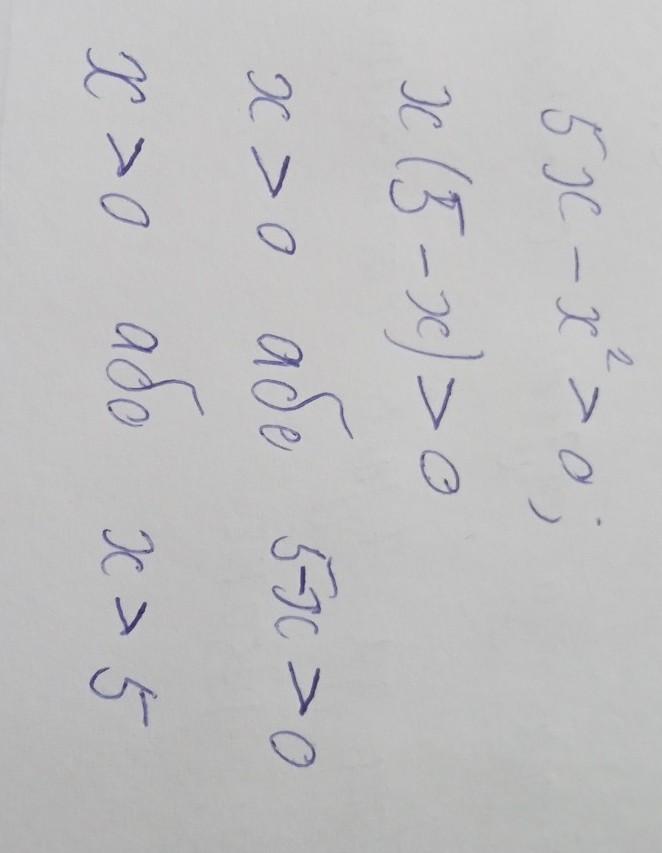 5x - x² > 0;
x(5 - x) > 0
x > 0 або 5-x > 0
x > 0 або x > 5